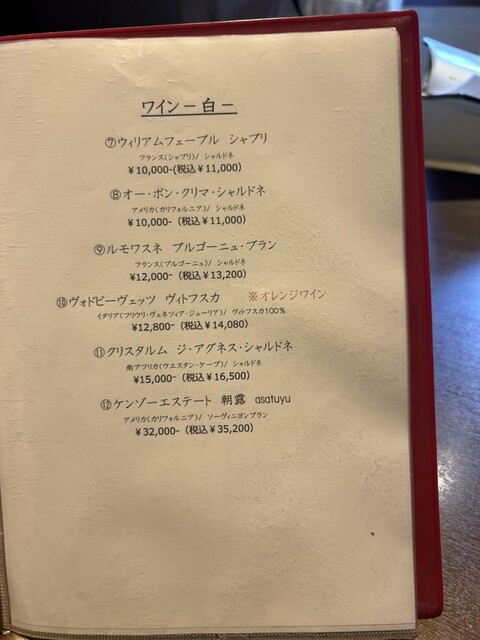 ワイン－白－
⑦ウィリアムフェーブル シャブリ
フランス(シャブリ)/ シャルドネ
¥10,000-(税込¥11,000)
⑧オー・ボン・クリマ・シャルドネ
アメリカ(カリフォルニア)/ シャルドネ
¥10,000- (税込¥11,000)
⑨ルモワスネ ブルゴーニュ・ブラン
フランス(ブルゴーニュ)/ シャルドネ
¥12,000- (税込¥13,200)
⑩ヴォドピーヴェッツ ヴィトフスカ ※オレンジワイン
イタリア(フリウリ・ヴェネツィア・ジューリア)/ ヴィトフスカ100%
¥12,800- (税込¥14,080)
⑪クリスタルム ジ・アグネス・シャルドネ
南アフリカ(ウエスタン・ケープ)/ シャルドネ
¥15,000- (税込¥16,500)
⑫ケンゾーエステート 朝露 asatuyu
アメリカ(カリフォルニア)/ ソーヴィニヨンブラン
¥32,000- (税込¥35,200)